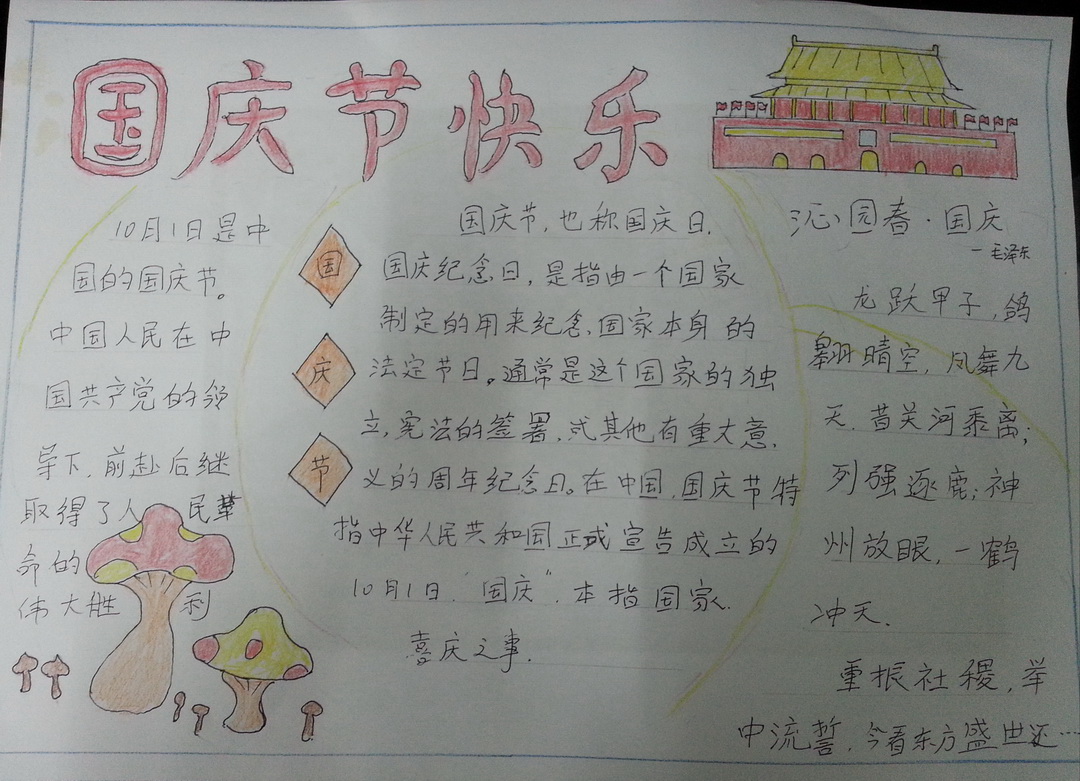 国庆节快乐
10月1日是中
国的国庆节。
中国人民在中
国共产党的领
导下，前赴后继
取得了人民革
命的
伟大胜利
国
庆
节
国庆节，也称国庆日，
国庆纪念日，是指由一个国家
制定的用来纪念，国家本身的
法定节日。通常是这个国家的独
立，宪法的签署，或其他有重大意，
义的周年纪念日。在中国，国庆节特
指中华人民共和国正式宣告成立的
10月1日．国庆"．本指国家．
喜庆之事．
沁园春·国庆
—毛泽东
龙跃甲子，鸽
翱晴空，凤舞九
天．昔关河乘离；
列强逐鹿；神
州放眼，一鹤
冲天．
重振社稷，举
中流誓．今看东方盛世还…